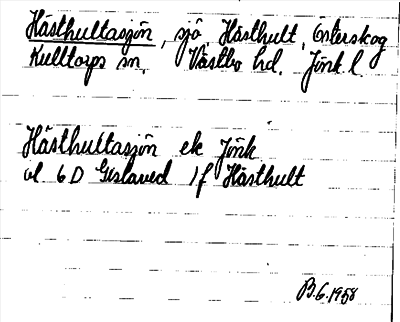 Hästhultasjön, sjö Hästhult, Österskog
Kulltorps sn. Västbo hd. Jönk l
Hästhultasjön ek Jönk
vl 6 D Gislaved 1 f Hästhult
B.6.1958